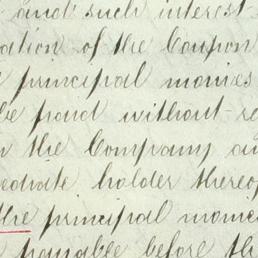 and such interest
ation of the Coupon
principal monies
be paid without re
the Company an
ediate holder thereof
the principal monies
payable before the